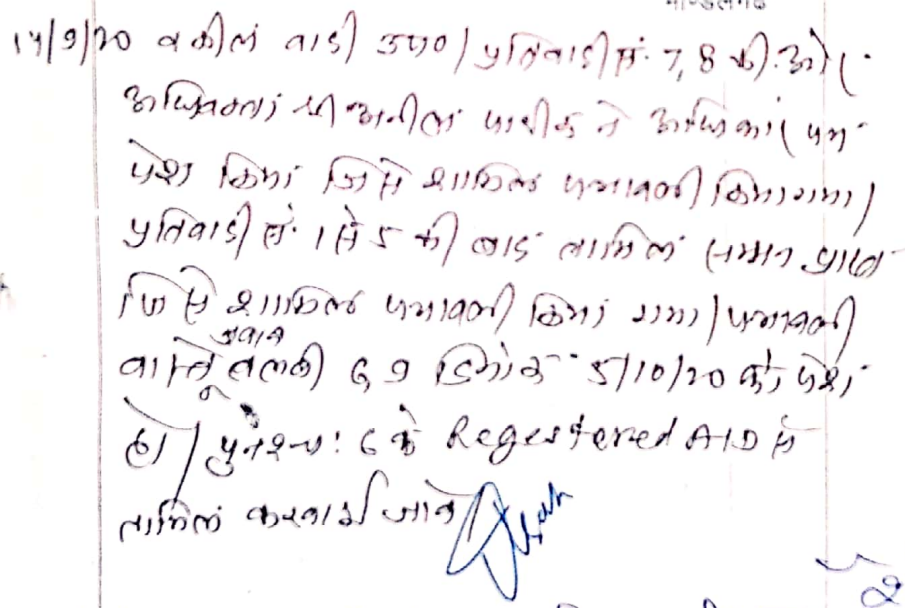 माण्डलगढ
14/9/20 वकील वादी उप०। प्रतिवादी सं. 7, 8 की ओर
अधिवक्ता श्री अनील पारीक ने अधिकार पत्र
पेश किया जिसे शामिल पत्रावली किया गया।
प्रतिवादी सं. 1 से 5 की बाद तामिल सम्मन प्राप्त
जिसे शामिल पत्रावली किया गया। पत्रावली
जवाब
वास्ते तलबी 6 9 दिनांक 5/10/20 को पेश
हो। पुनश्च: 6 के Registered A/D से
तामिल करवाई जावे।